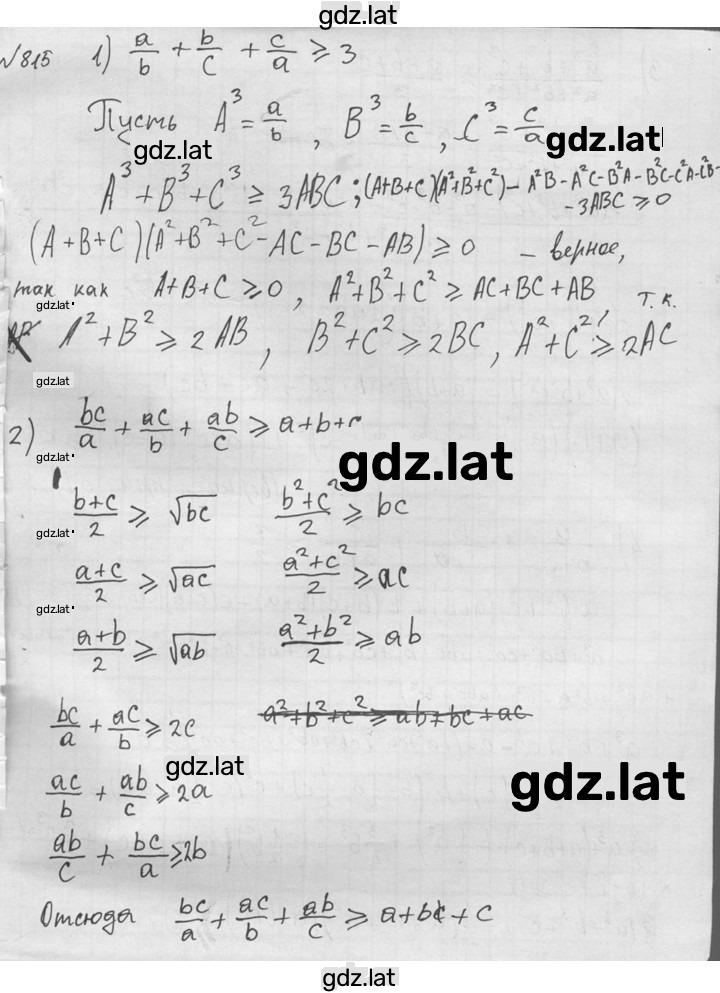 gdz.lat
№815 1) a/b + b/c + c/a ≥ 3
Пусть A³ = a/b, B³ = b/c, C³ = c/a
gdz.lat
gdz.lat
A³ + B³ + C³ ≥ 3ABC; (A+B+C)(A²+B²+C²) - A²B - A²C - B²A - B²C - C²A - C²B -
- 3ABC ≥ 0
(A+B+C)(A²+B²+C² - AC - BC - AB) ≥ 0 - верное,
так как A+B+C ≥ 0, A²+B²+C² ≥ AC+BC+AB т.к.
gdz.lat
A²+B² ≥ 2AB, B²+C² ≥ 2BC, A²+C² ≥ 2AC
gdz.lat
2) bc/a + ac/b + ab/c ≥ a+b+c
gdz.lat
gdz.lat
(b+c)/2 ≥ √bc (b²+c²)/2 ≥ bc
gdz.lat
(a+c)/2 ≥ √ac (a²+c²)/2 ≥ ac
gdz.lat
(a+b)/2 ≥ √ab (a²+b²)/2 ≥ ab
bc/a + ac/b ≥ 2c a²+b²+c² ≥ ab+bc+ac
gdz.lat
gdz.lat
ac/b + ab/c ≥ 2a
ab/c + bc/a ≥ 2b
Отсюда bc/a + ac/b + ab/c ≥ a+b+c
gdz.lat